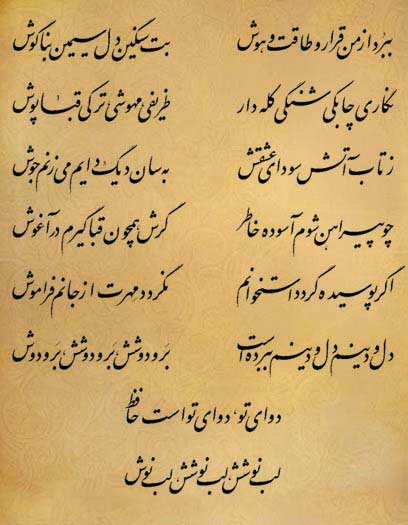 ببرد از من قرار و طاقت و هوش بت سنگین دل سیمین بناگوش
نگاری چابکی شنگی کله دار ظریفی مهوشی ترکی قباپوش
ز تاب آتش سودای عشقش به سان دیگ دایم می زنم جوش
چو پیراهن شوم آسوده خاطر گرش همچون قبا گیرم در آغوش
اگر پوسیده گردد استخوانم نگردد مهرت از جانم فراموش
دل و دینم دل و دینم ببرده است بر و دوشش بر و دوشش بر و دوش
دوای تو، دوای توست حافظ
لب نوشش لب نوشش لب نوش